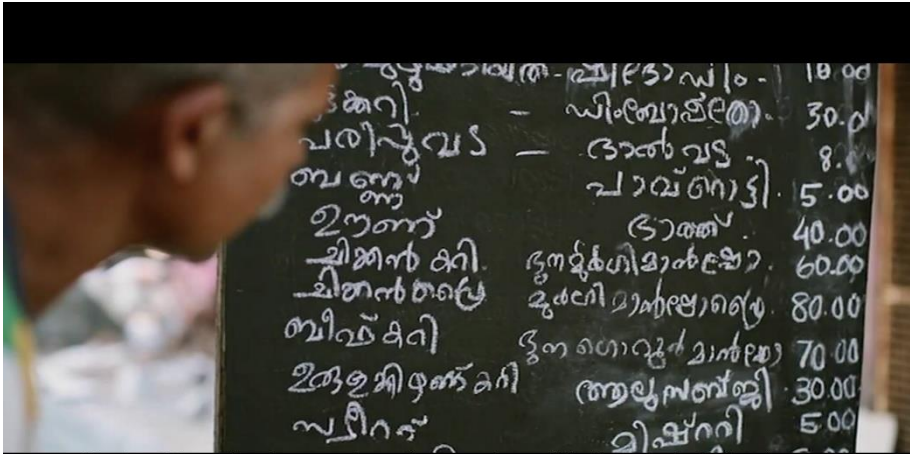 പുഴുങ്ങിയത് - സിദ്ധോഡിം - 10.00
മുട്ടക്കറി - ഡിംബോഷ്തോ. 30.0
പരിപ്പുവട - ദാൽവട. 8.
ബണ്ണ് പാവ്റൊട്ടി. 5.00
ഊണ് ഭാത്ത് 40.00
ചിക്കൻ കറി. ഭുനമുർഗിമാൻഷോ. 60.00
ചിക്കൻഫ്രൈ മുർഗിമാൻഷോഫ്രൈ. 80.00
ബീഫ് കറി ഭുന ഗൊറുർമാൻഷോ 70.00
ഉരുളക്കിഴങ്ങ് കറി ആലുസബ്ജി. 30.00
സ്വീററ് മിഷ്ററി 5.00